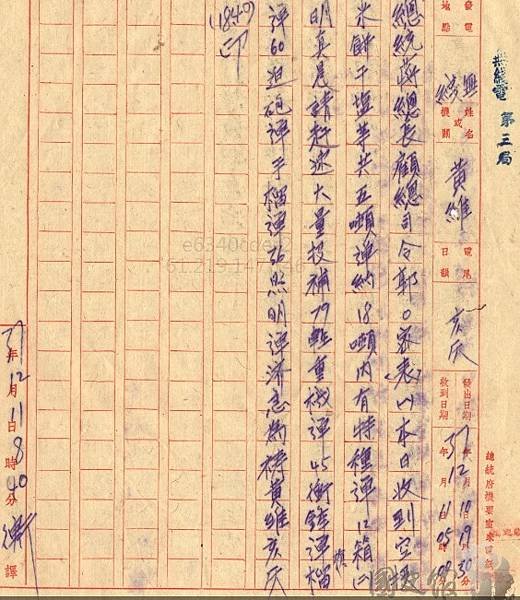 無線電第三局
總統府機要室來電紙
發出日期 37年12月10日19時30分
收到日期 年 月11日05時 分
電尾日韻 亥灰
姓名或機關 黃維
發電地點 雙
總統蔣總長顧總司令郭0密表(一)本日收到空投
米餅干塩等共五噸彈約18噸內有特種彈12箱(二)
明真是請趕送大量投補79輕重機彈45衝鋒彈榴
彈60迫砲彈手榴彈36照明彈濟急為禱黃維亥灰
(1840)印
37年12月11日8時40分 譯